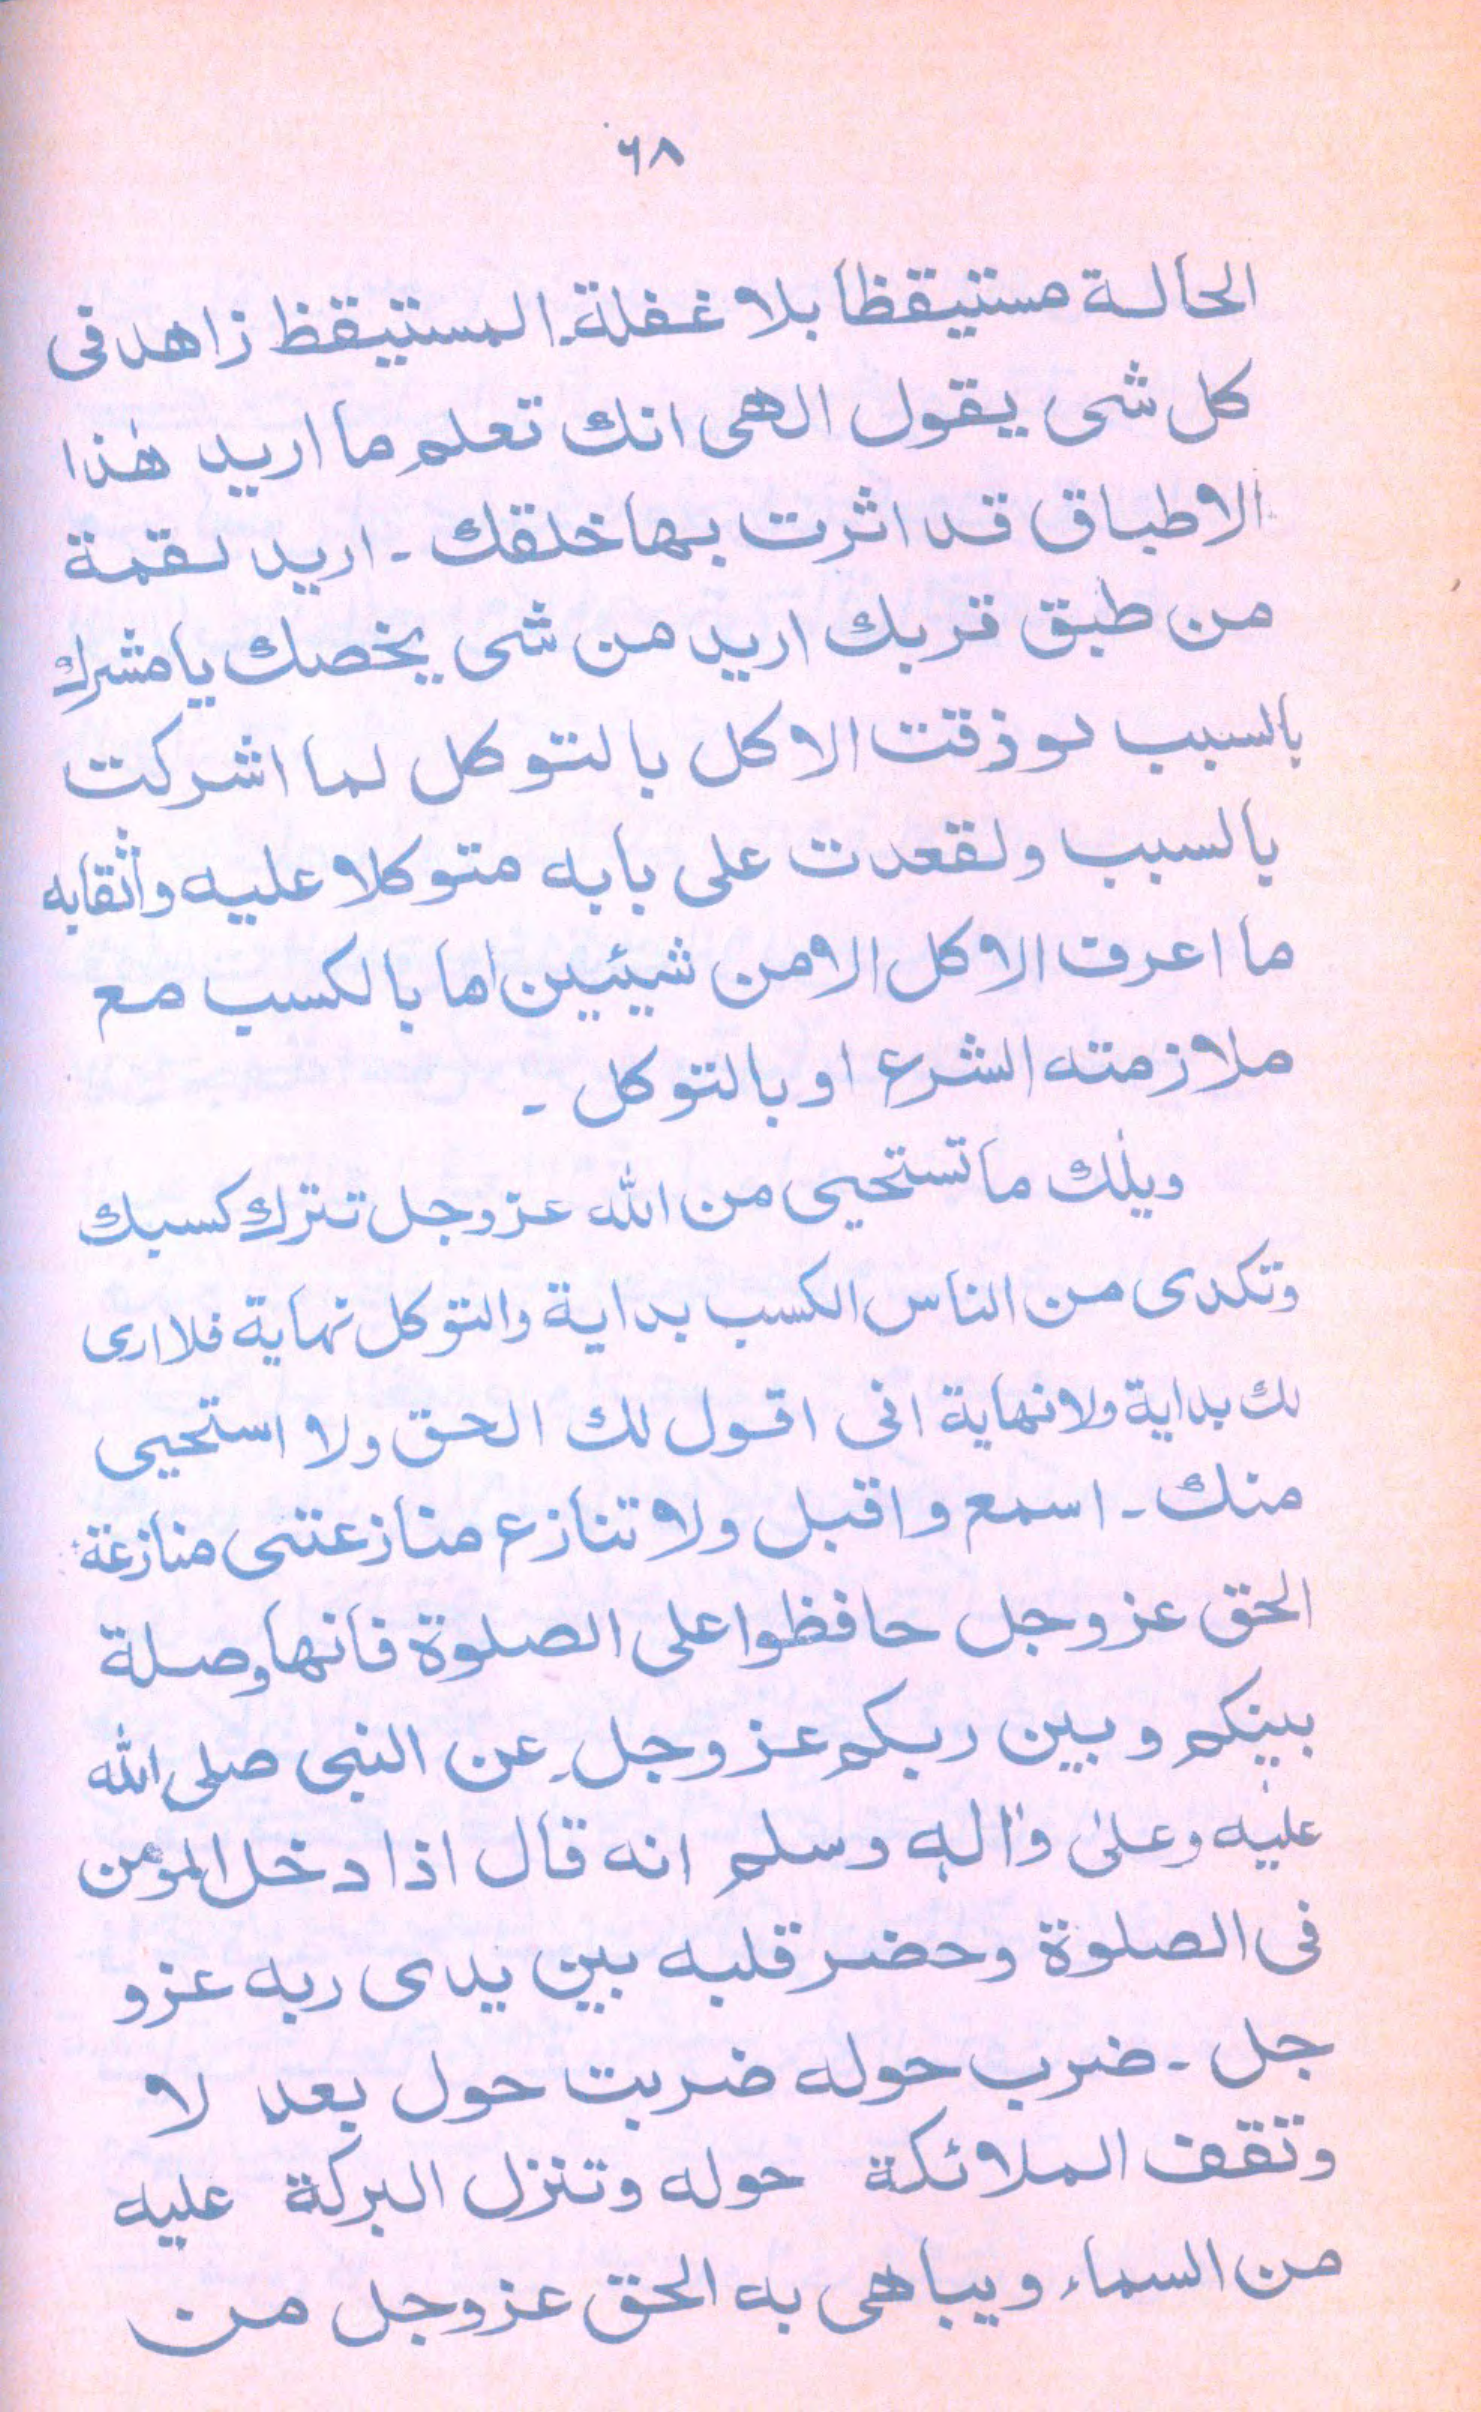 ٦٨
الحالة مستيقظا بلا غفلة۔ المستيقظ زاهد فى
كل شى يقول الهى انك تعلم ما اريد هٰذا
الاطباق قد اثرت بها خلقك ۔ اريد لقمة
من طبق قربك اريد من شى يخصك يا مشرك
بالسبب لو ذقت الاكل بالتوكل لما اشركت
بالسبب ولقعدت على بابه متوكلا عليه واثقابه
ما اعرف الاكل الا من شيئين اما بالكسب مع
ملازمته الشرع او بالتوكل ۔
ويلك ما تستحيى من الله عز وجل تترك كسبك
وتكدى من الناس الكسب بداية والتوكل نهاية فلا ارى
لك بداية ولا نهاية انى اقول لك الحق ولا استحيى
منك ۔ اسمع واقبل ولا تنازع منازعتنى منازعة
الحق عز وجل حافظوا على الصلوة فانها وصلة
بينكم وبين ربكم عز وجل۔ عن النبى صلى الله
عليه وعلىٰ واٰله وسلم انه قال اذا دخل المؤمن
فى الصلوة وحضر قلبه بين يدى ربه عز و
جل ۔ ضرب حوله ضربت حول بعد لا
وتقف الملائكة حوله وتنزل البركة عليه
من السماء ويباهى به الحق عز وجل من